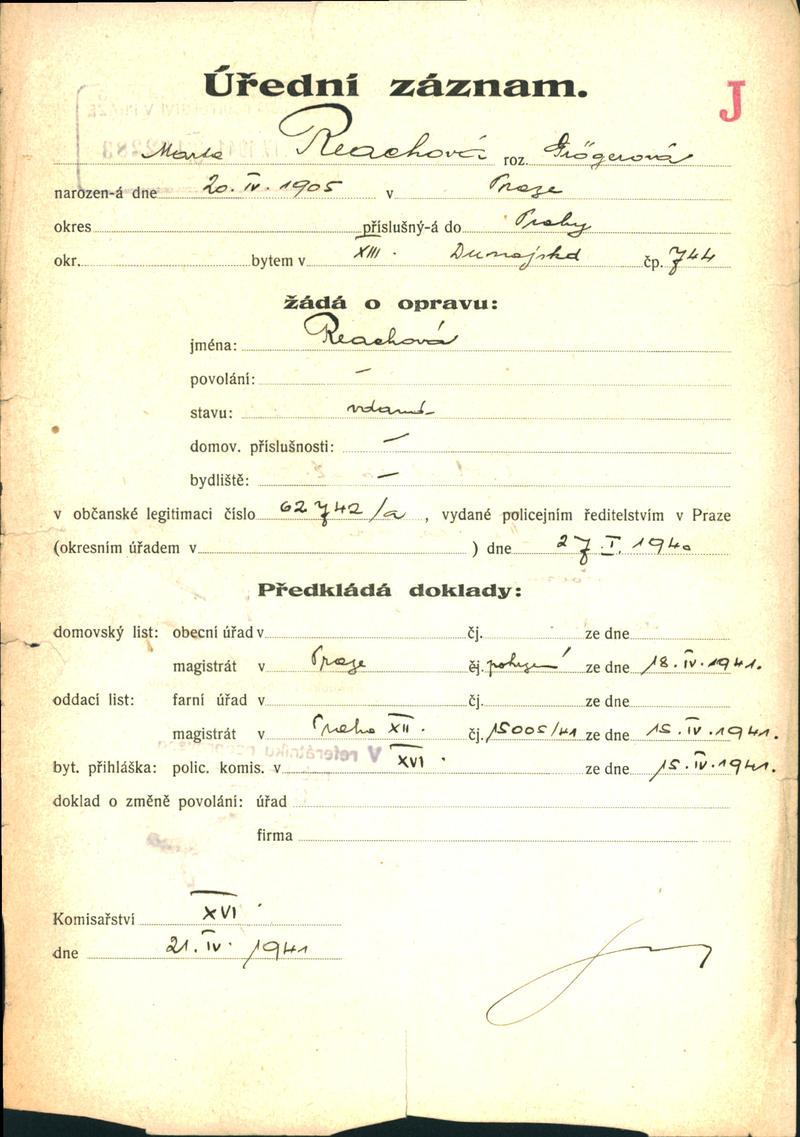 Úřední záznam.
J
Marta Reachová roz. Grögerová
narozen-á dne 20. IV. 1905 v Praze
okres příslušný-á do Prahy
okr. bytem v XIII. Dunajská čp. 744
žádá o opravu:
jména: Reachová
povolání: —
stavu: vdaná
domov. příslušnosti: —
bydliště: —
v občanské legitimaci číslo 62742/a, vydané policejním ředitelstvím v Praze
(okresním úřadem v ) dne 27. I. 1940
Předkládá doklady:
domovský list: obecní úřad v čj. ze dne
magistrát v Praze čj. ze dne 18. IV. 1941.
oddací list: farní úřad v čj. ze dne
magistrát v Praha XII. čj. 15005/41 ze dne 15. IV. 1941.
V referátníku
byt. přihláška: polic. komis. v XVI. ze dne 15. IV. 1941.
doklad o změně povolání: úřad
firma
Komisařství XVI.
dne 21. IV. 1941